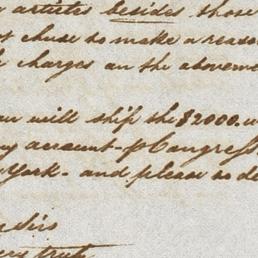 artists besides those
chuse to make a reaso
charges on the aboveme
will ship the $2000.
my account - p Congress
York - and please to de
truly